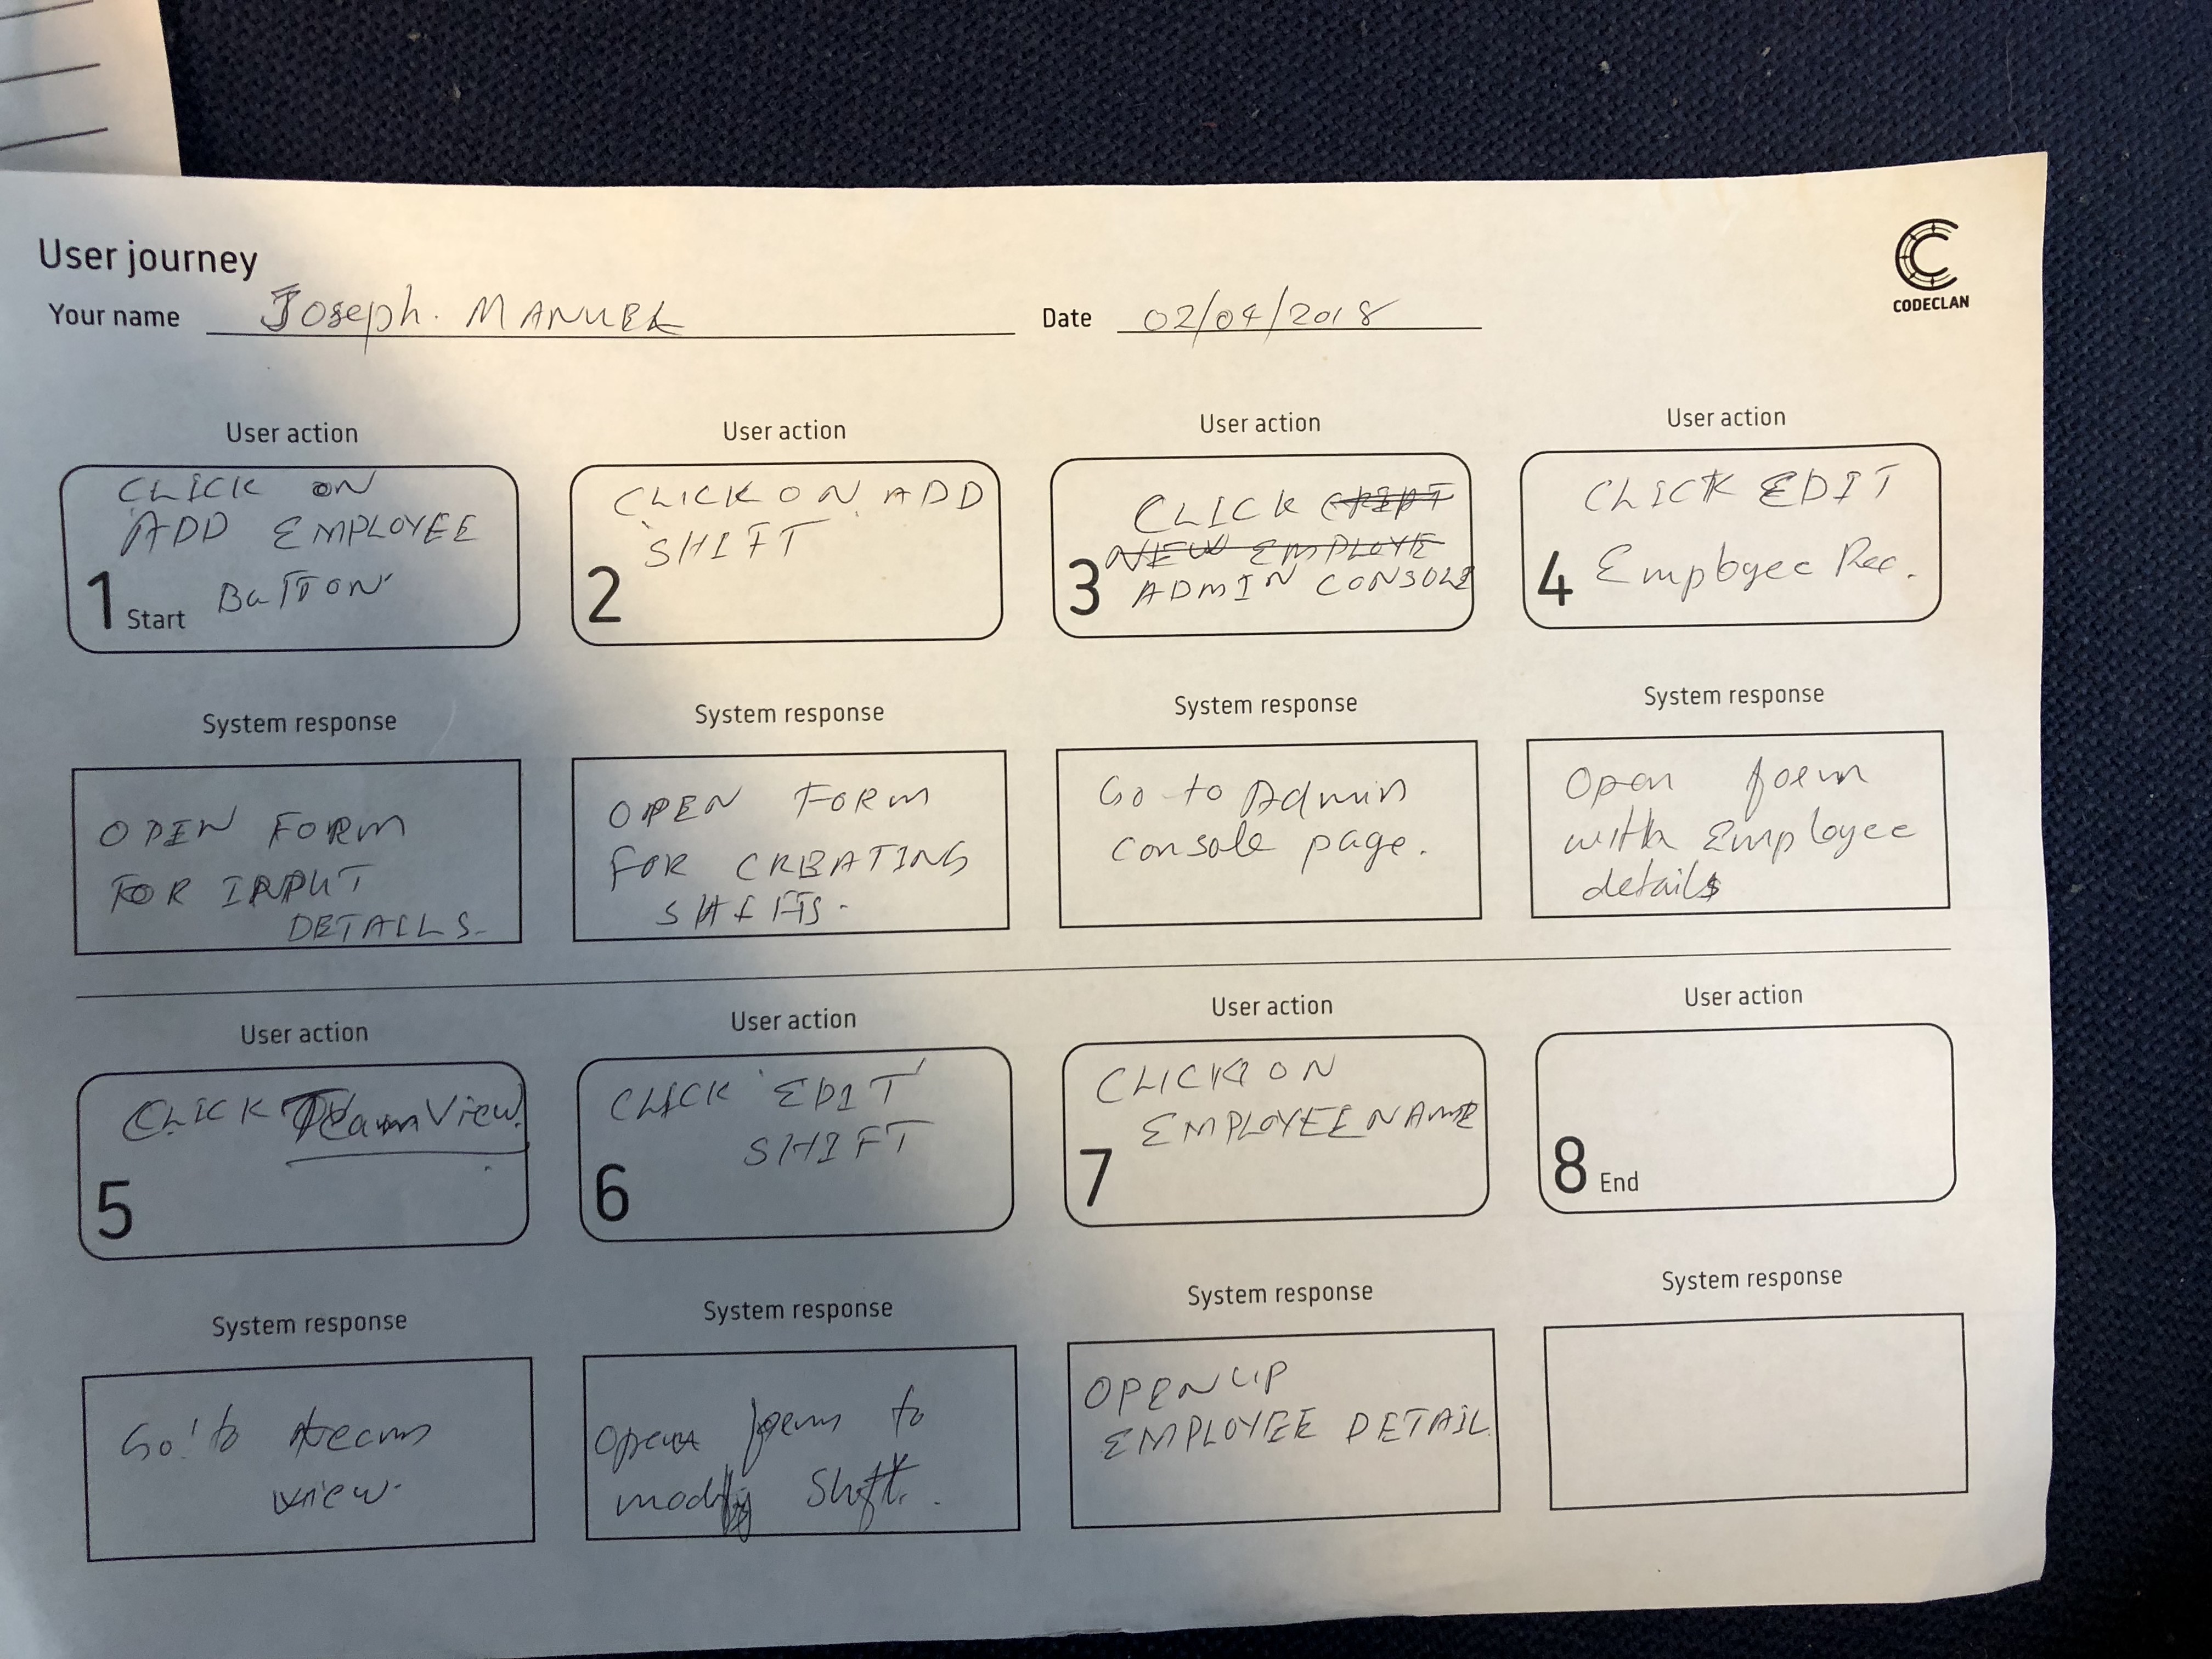 User journey
CODECLAN
Your name Joseph. MANUEL Date 02/04/2018
User action
CLICK ON
ADD EMPLOYEE
BUTTON
1 Start
User action
CLICK ON ADD
SHIFT
2
User action
CLICK
NEW EMPLOYE
ADMIN CONSOLE
3
User action
CLICK EDIT
Employee Rec.
4
System response
OPEN FORM
FOR INPUT
DETAILS.
System response
OPEN FORM
FOR CREATING
SHIFTS.
System response
Go to Admin
console page.
System response
Open form
with Employee
details
User action
CLICK Team View
5
User action
CLICK 'EDIT'
SHIFT
6
User action
CLICK ON
EMPLOYEE NAME
7
User action
8 End
System response
Go to team
view.
System response
Open form to
modify Shift.
System response
OPEN UP
EMPLOYEE DETAIL
System response